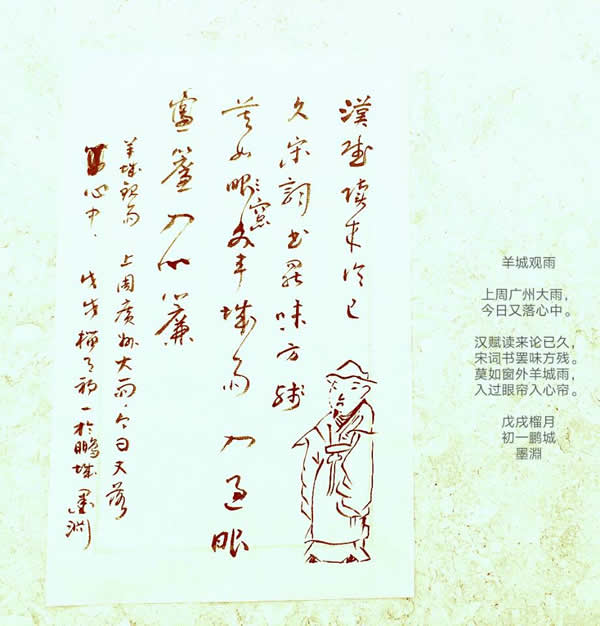 漢赋读来论已
久宋詞书罢味方残
莫如眼窓外羊城雨入过眼
簾入心簾
羊城观雨 上周廣州大雨,今日又落
心中. 戊戌榴月初一於鹏城 墨渊
羊城观雨
上周广州大雨，
今日又落心中。
汉赋读来论已久，
宋词书罢味方残。
莫如窗外羊城雨，
入过眼帘入心帘。
戊戌榴月
初一鹏城
墨淵